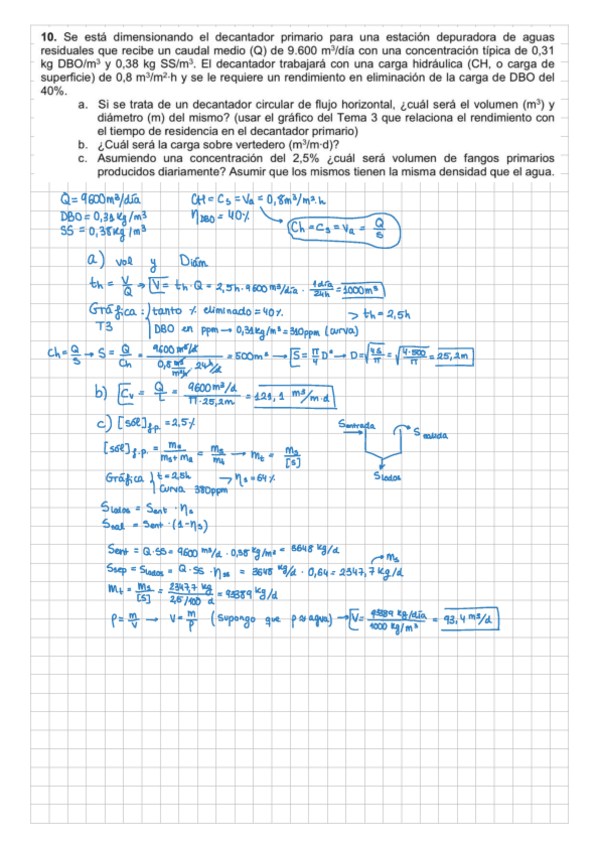 10. Se está dimensionando el decantador primario para una estación depuradora de aguas
residuales que recibe un caudal medio (Q) de 9.600 m³/día con una concentración típica de 0,31
kg DBO/m³ y 0,38 kg SS/m³. El decantador trabajará con una carga hidráulica (CH, o carga de
superficie) de 0,8 m³/m²·h y se le requiere un rendimiento en eliminación de la carga de DBO del
40%.
a. Si se trata de un decantador circular de flujo horizontal, ¿cuál será el volumen (m³) y
diámetro (m) del mismo? (usar el gráfico del Tema 3 que relaciona el rendimiento con
el tiempo de residencia en el decantador primario)
b. ¿Cuál será la carga sobre vertedero (m³/m·d)?
c. Asumiendo una concentración del 2,5% ¿cuál será volumen de fangos primarios
producidos diariamente? Asumir que los mismos tienen la misma densidad que el agua.
Q = 9600 m³/día CH = Cs = Va = 0,8 m³/m².h
DBO = 0,31 kg/m³ ηDBO = 40% Ch = Cs = Va = Q/S
SS = 0,38 kg/m³
a) vol y Diám
th = V/Q → V = th · Q = 2,5h · 9600 m³/día · 1día/24h = 1000 m³
Gráfica: tanto % eliminado = 40% > th = 2,5h
T3 DBO en ppm → 0,31 kg/m³ = 310 ppm (curva)
Ch = Q/S → S = Q/Ch = 9600 m³/d / 0,8 m³/m²h · 24h/d = 500m² → S = π/4 D² → D = √4·S/π = √4·500/π = 25,2m
b) Cv = Q/L = 9600 m³/d / π·25,2m = 121,1 m³/m·d
c) [sól]f.p. = 2,5% Sentrada Ssalida
[sól]f.p. = ms/ms+ma = ms/mt → mt = ms/[s]
Slodos
Gráfica t = 2,5h → ηs = 64%
curva 380ppm
Slodos = Sent · ηs
Ssal = Sent · (1-ηs)
Sent = Q · SS = 9600 m³/d · 0,38 kg/m³ = 3648 kg/d
Ssep = Slodos = Q · SS · ηss = 3648 kg/d · 0,64 = 2347,7 kg/d → ms
mt = ms/[s] = 2347,7 kg / 2,5/100 d = 93389 kg/d
ρ = m/V → V = m/ρ (supongo que ρ=ρagua) → V = 93389 kg/día / 1000 kg/m³ = 93,4 m³/d